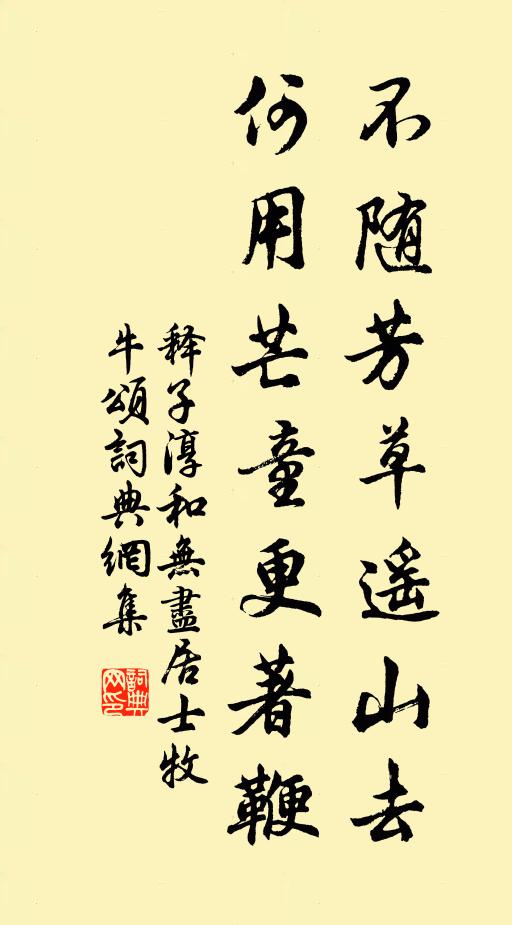 不随芳草遥山去
何用芒童更著鞭
释子淳和無盡居士牧
牛頌詞典網集
詞典
网印